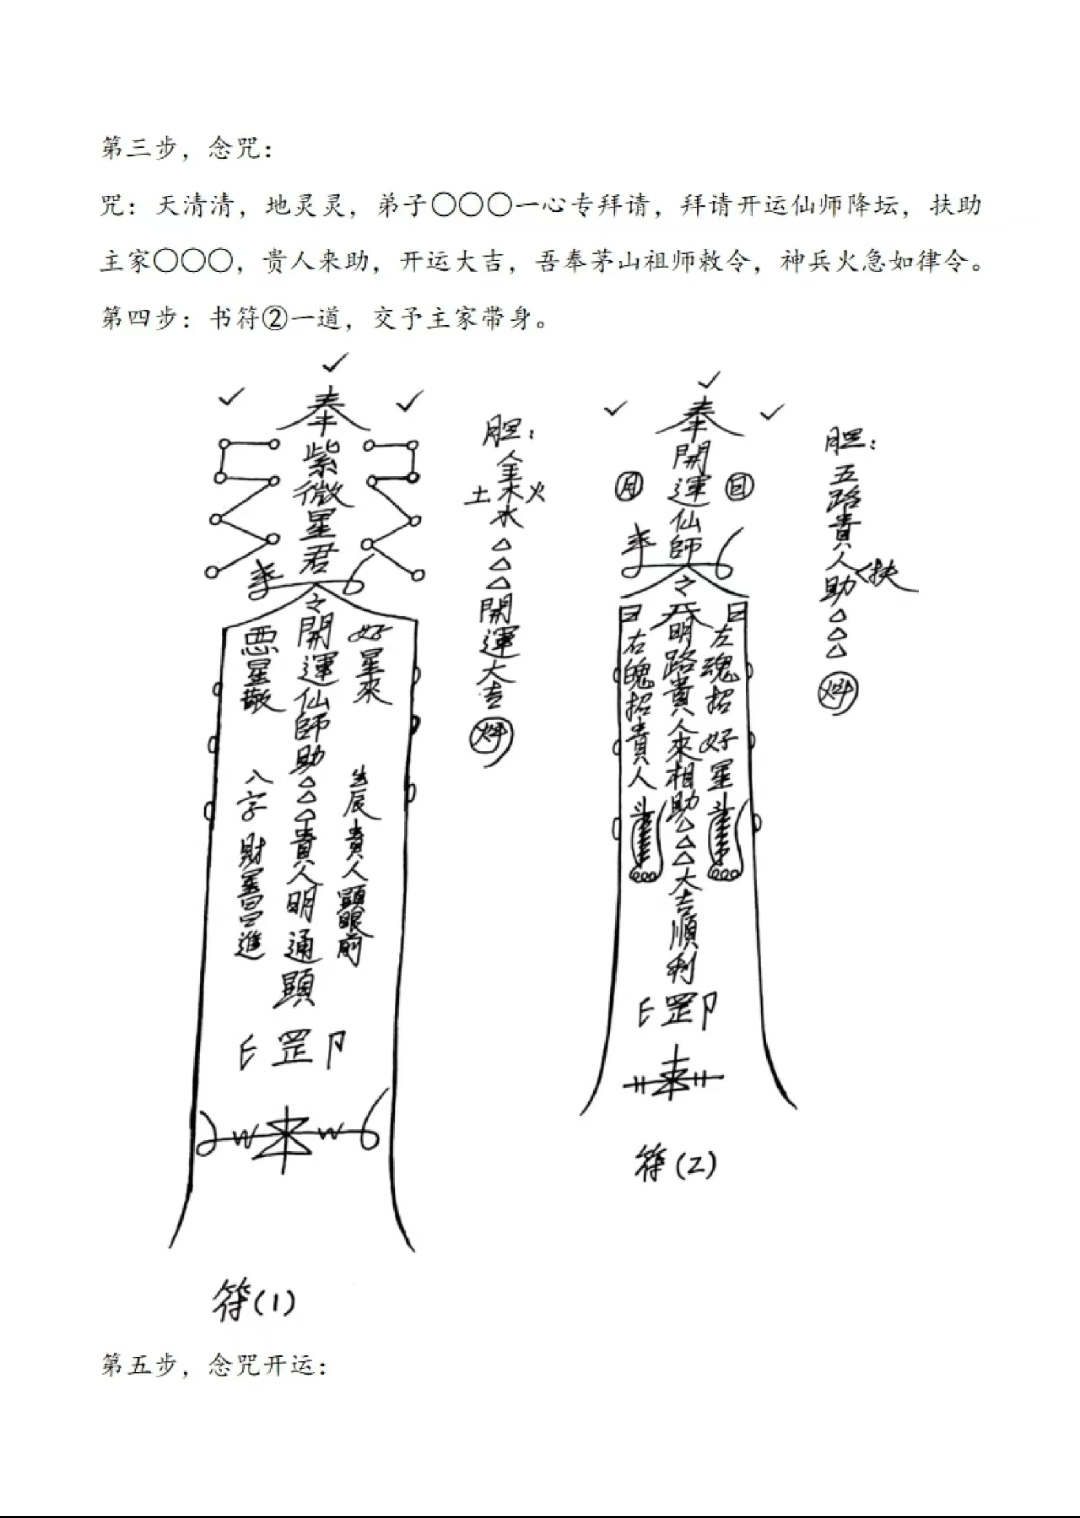 第三步，念咒：
咒：天清清，地灵灵，弟子〇〇〇一心专拜请，拜请开运仙师降坛，扶助
主家〇〇〇，贵人来助，开运大吉，吾奉茅山祖师敕令，神兵火急如律令。
第四步：书符②一道，交予主家带身。
奉
紫微星君
之開運仙師助△△△貴人明通顯
好星來
生辰貴人顯眼前
八字財
進
罡
符(1)
胆：
金木水
土
火
△△△開運大吉
奉
開運仙師
月
日
之
明路貴人來相助△△△大吉順利
左魂招好星
右魄招貴人
罡
符(2)
胆：
五路貴人扶助△△△
第五步，念咒开运：